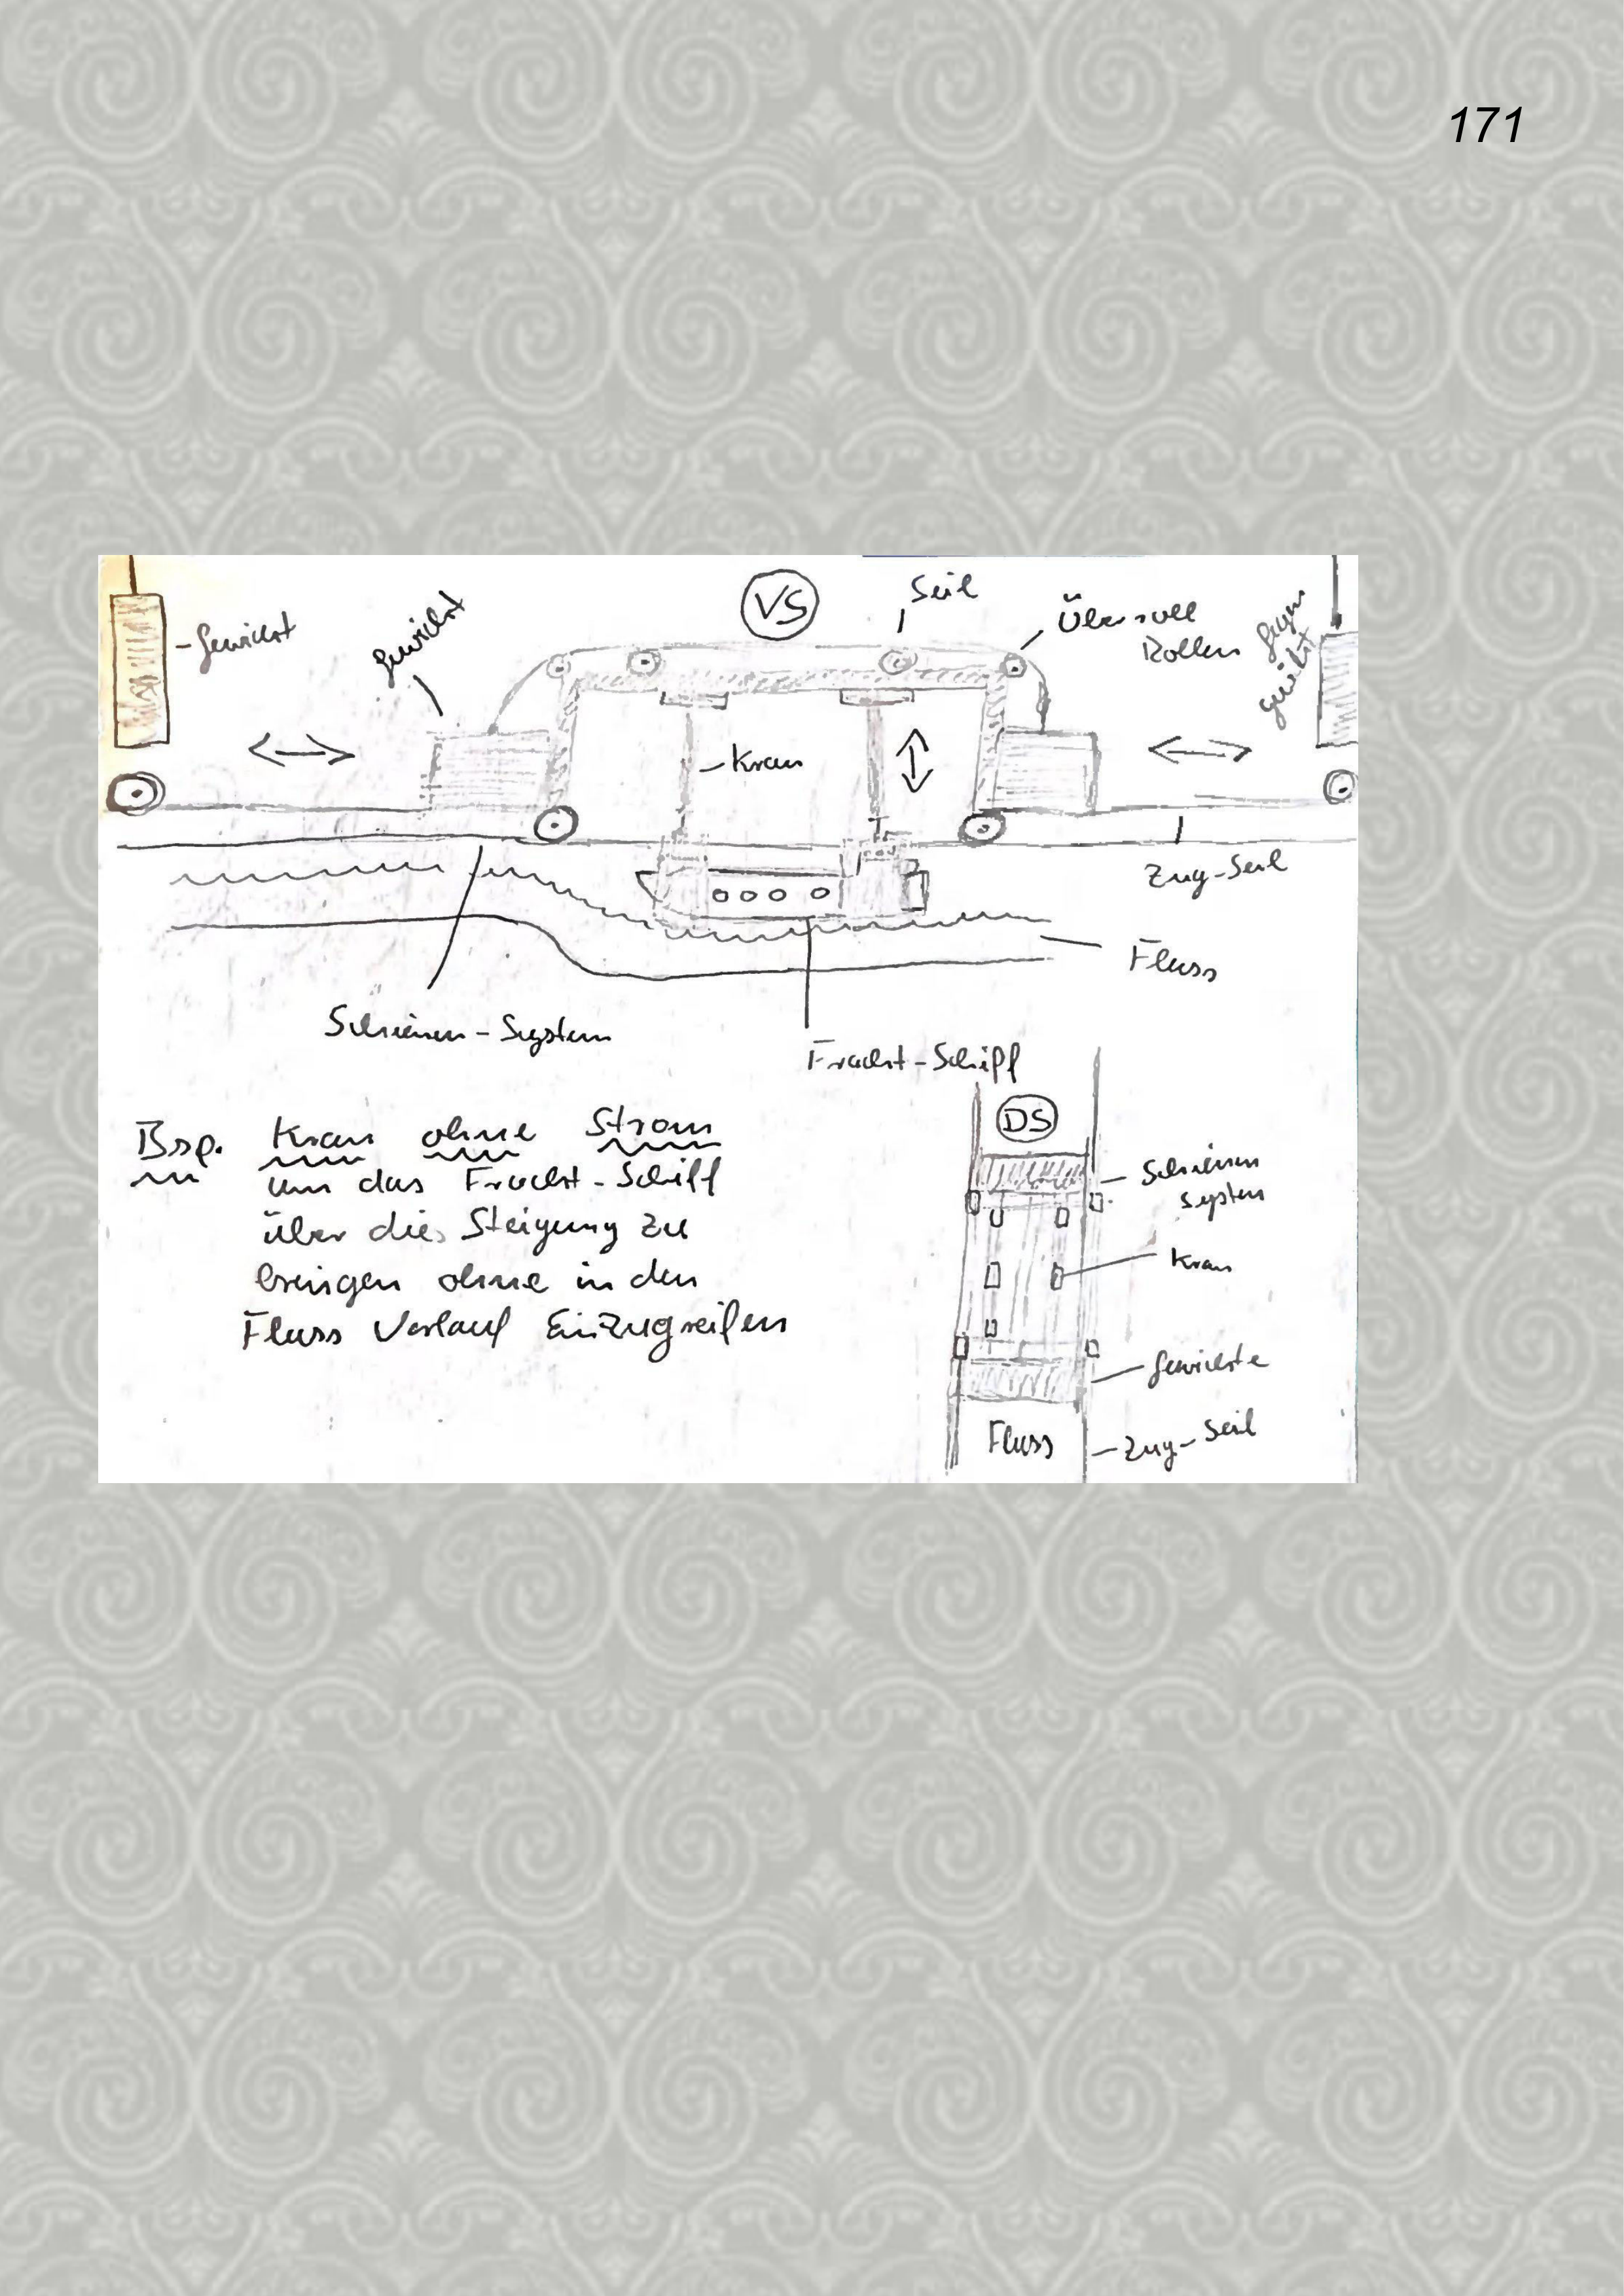 171
VS
Seil
Gewicht
Gewicht
Überroll
Rollen
Gegen
gewicht
Kran
Zug-Seil
Fluss
Schienen-System
Fracht-Schiff
Bsp. Kran ohne Strom
um das Fracht-Schiff
über die Steigung zu
bringen ohne in den
Fluss Verlauf Einzugreifen
DS
Schienen
System
Kran
Gewichte
Fluss
Zug-Seil